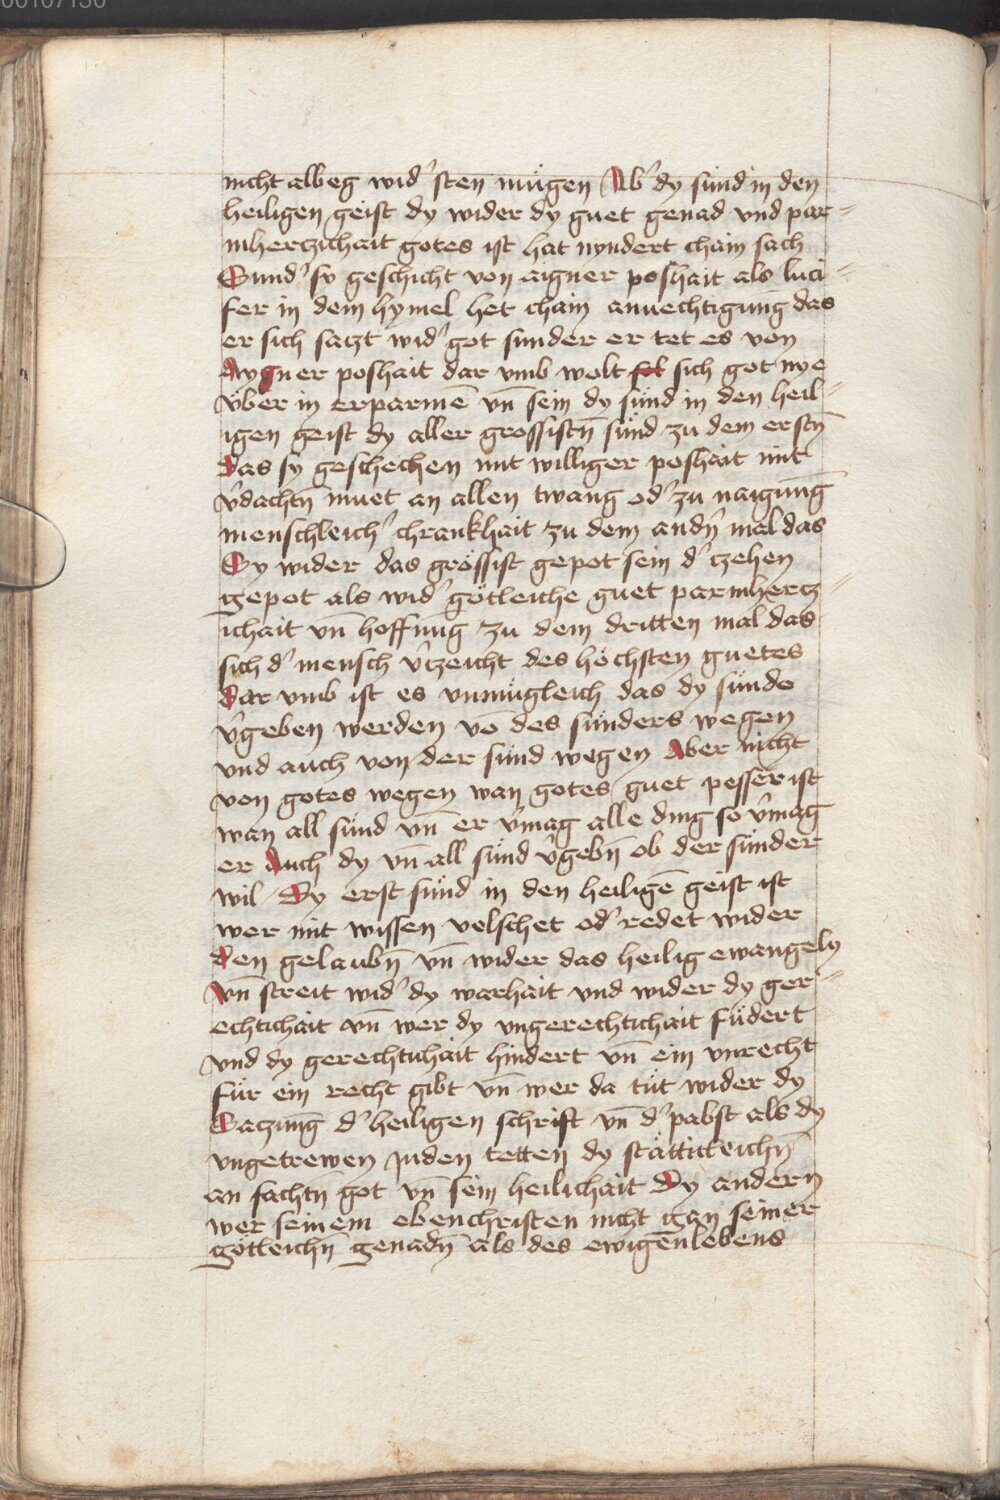 00107130
nicht albeg wid' sten mügen Ab' dy sünd in den
heiligen geist dy wider dy guet genad vnd par=
mherczichait gotes ist hat nyndert chain sach
Sund' sy geschicht von aigner poshait als luci=
fer in dem hymel het chain anuechtigung das
er sich saczt wid' got sunder er tet es von
Aygner poshait dar vmb wolt sich got nye
vber in erparmē vn̄ sein dy sünd in den heil=
igen geist dy aller grossistn̄ sünd zu dem erstn̄
Das sy geschechen mit williger poshait mit
v'dachtn̄ muet an allen twang od' zu naigung
menschleich' chrankhait zu dem andn̄ mal das
Sy wider das grössist gepot sein d' czehen
gepot als wid' götleiche guet parmhercz=
ichait vn̄ hoffnūg zu dem dritten mal das
sich d' mensch v'czeicht des höchsten guetes
Dar vmb ist es vnmügleich das dy sünde
v'geben werden vō des sünders wegen
vnd auch von der sünd wegen Aber nicht
von gotes wegen wan gotes guet pesser ist
wan all sünd vn̄ er v'mag alle ding so v'mag
er Auch dy vn̄ all sünd v'gebn̄ ob der sünder
wil Dy erst sünd in den heiligē geist ist
wer mit wissen velschet od' redet wider
Den gelaubn̄ vn̄ wider das heilig ewangely
Vn̄ streit wid' dy warhait vnd wider dy ger=
echtichait vn̄ wer dy vngerechtichait füdert
vnd dy gerechtichait hindert vn̄ ein vnrecht
für ein recht gibt vn̄ wer da tüt wider dy
Saczung d' heiligen schrift vn̄ d' pabst als dy
vngetrewen juden tetten dy stättickeichn̄
an fachtn̄ got vn̄ sein heilichait Dy andern
wer seinem ebenchristen nicht gan seiner
götleichn̄ genadn̄ als des ewigen lebens